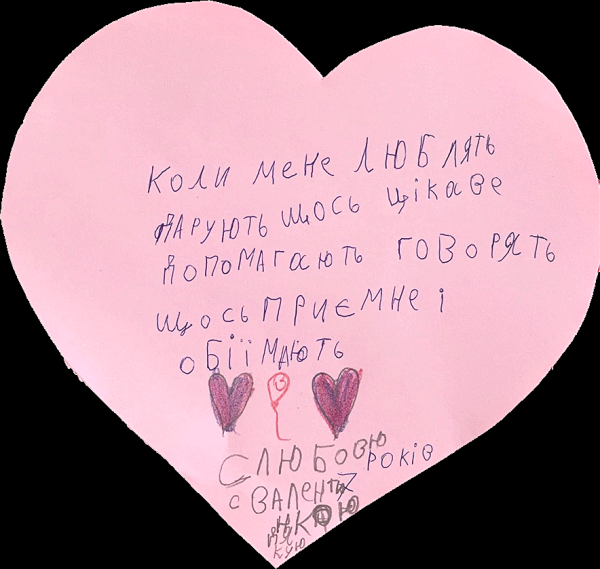 Коли мене люблять
дарують щось цікаве
допомагають говорять
щось приємне і
обіїмають
З любовю
7 років
с Валенти
нкою
дя
кую